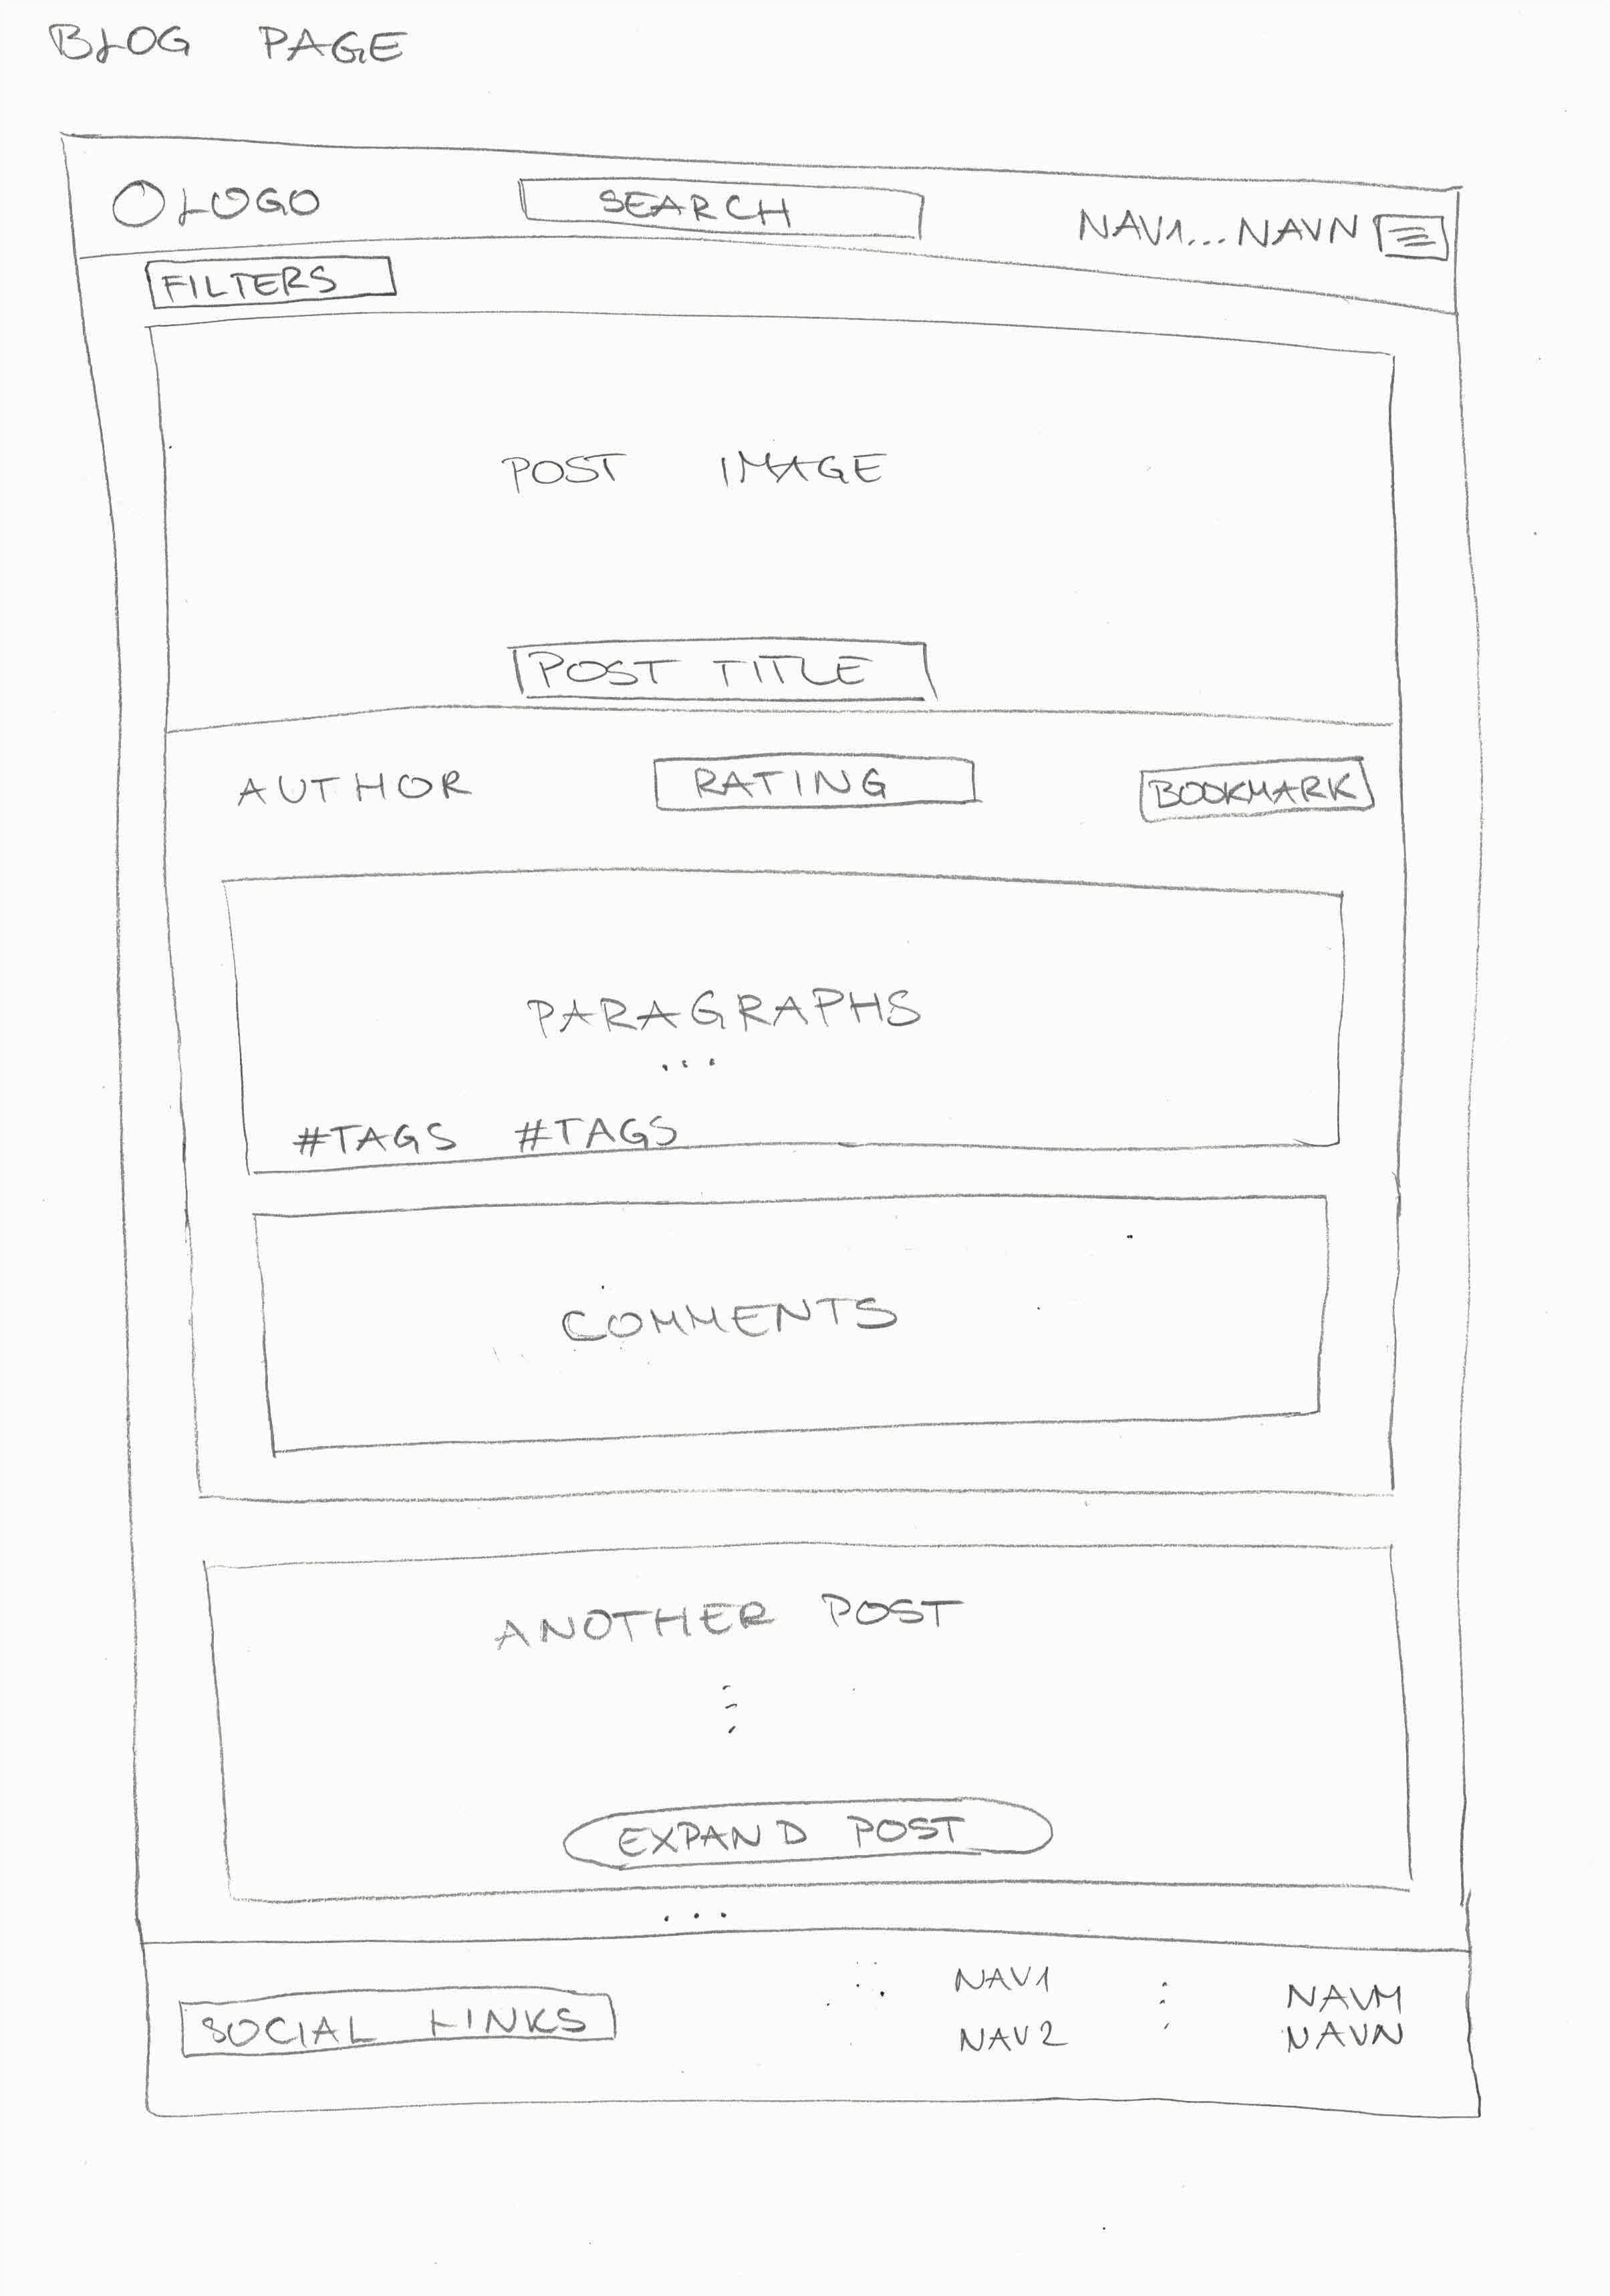 BLOG PAGE
LOGO
SEARCH
NAV1...NAVN
FILTERS
POST IMAGE
POST TITLE
AUTHOR
RATING
BOOKMARK
PARAGRAPHS
...
#TAGS #TAGS
COMMENTS
ANOTHER POST
EXPAND POST
...
SOCIAL LINKS
NAV1
NAV2
NAVM
NAVN